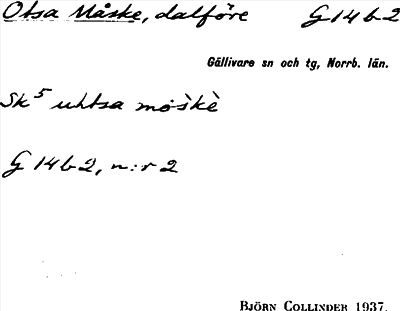 Otsa Måske, dalföre G14b2
Gällivare sn och tg, Norrb. län.
Sk⁵ uhtsa mo͕skè
G 14 b 2, n:r 2
BJÖRN COLLINDER 1937.